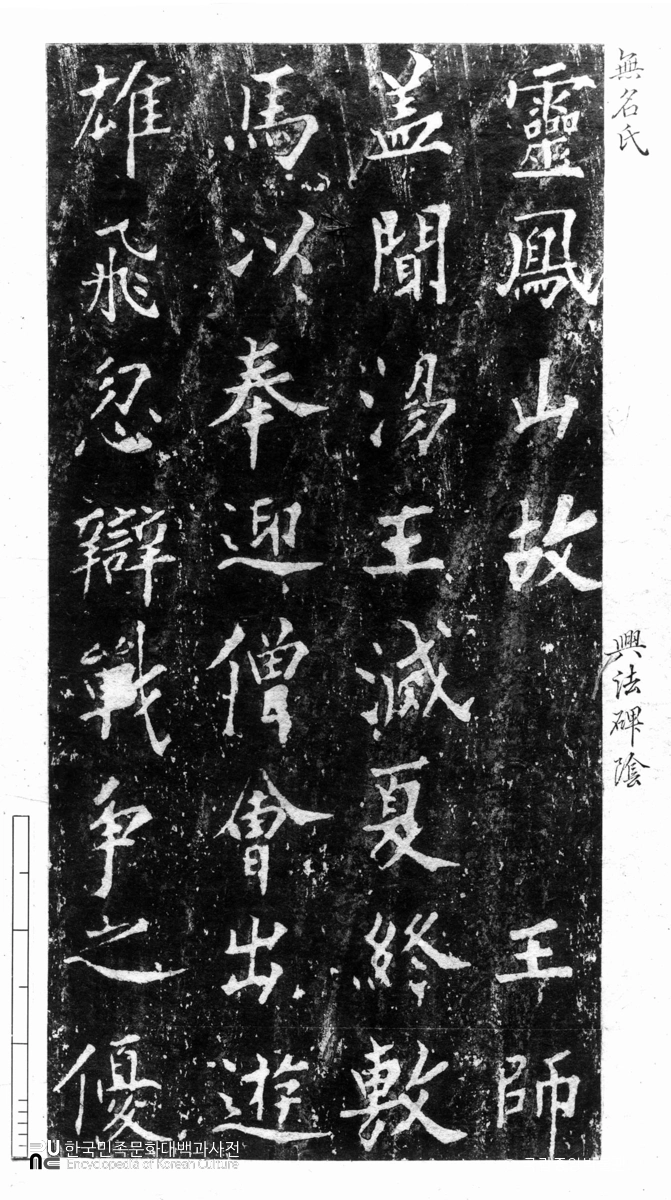 無名氏
興法碑陰
靈鳳山故 王師
盖聞湯王滅夏終敷
馬以奉迎僧會出遊
雄飛忽辯戰爭之優
한국민족문화대백과사전
Encyclopedia of Korean Culture